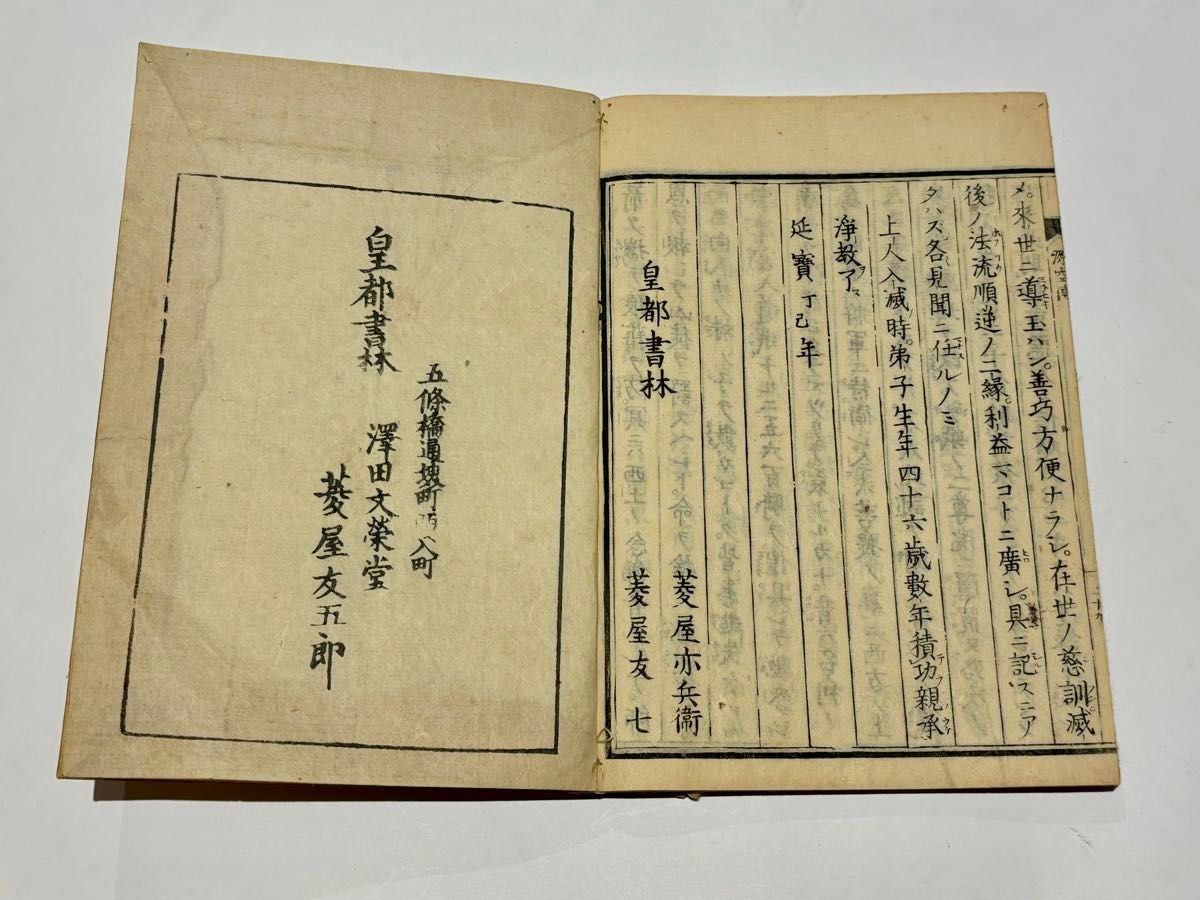 メ。來世ニ導玉ハン。善巧方便ナラン。在世ノ慈訓滅
後ノ法流順逆ノ二縁。利益マコトニ廣シ。具ニ記スニア
タハズ各見聞ニ任ルノミ
上人入滅時。弟子生年四十六歲數年積功親承
淨教了
延寶丁巳年
皇都書林
菱屋亦兵衞
菱屋友七
五條橋通堺町 入町
皇都書林
澤田文榮堂
菱屋友五郎